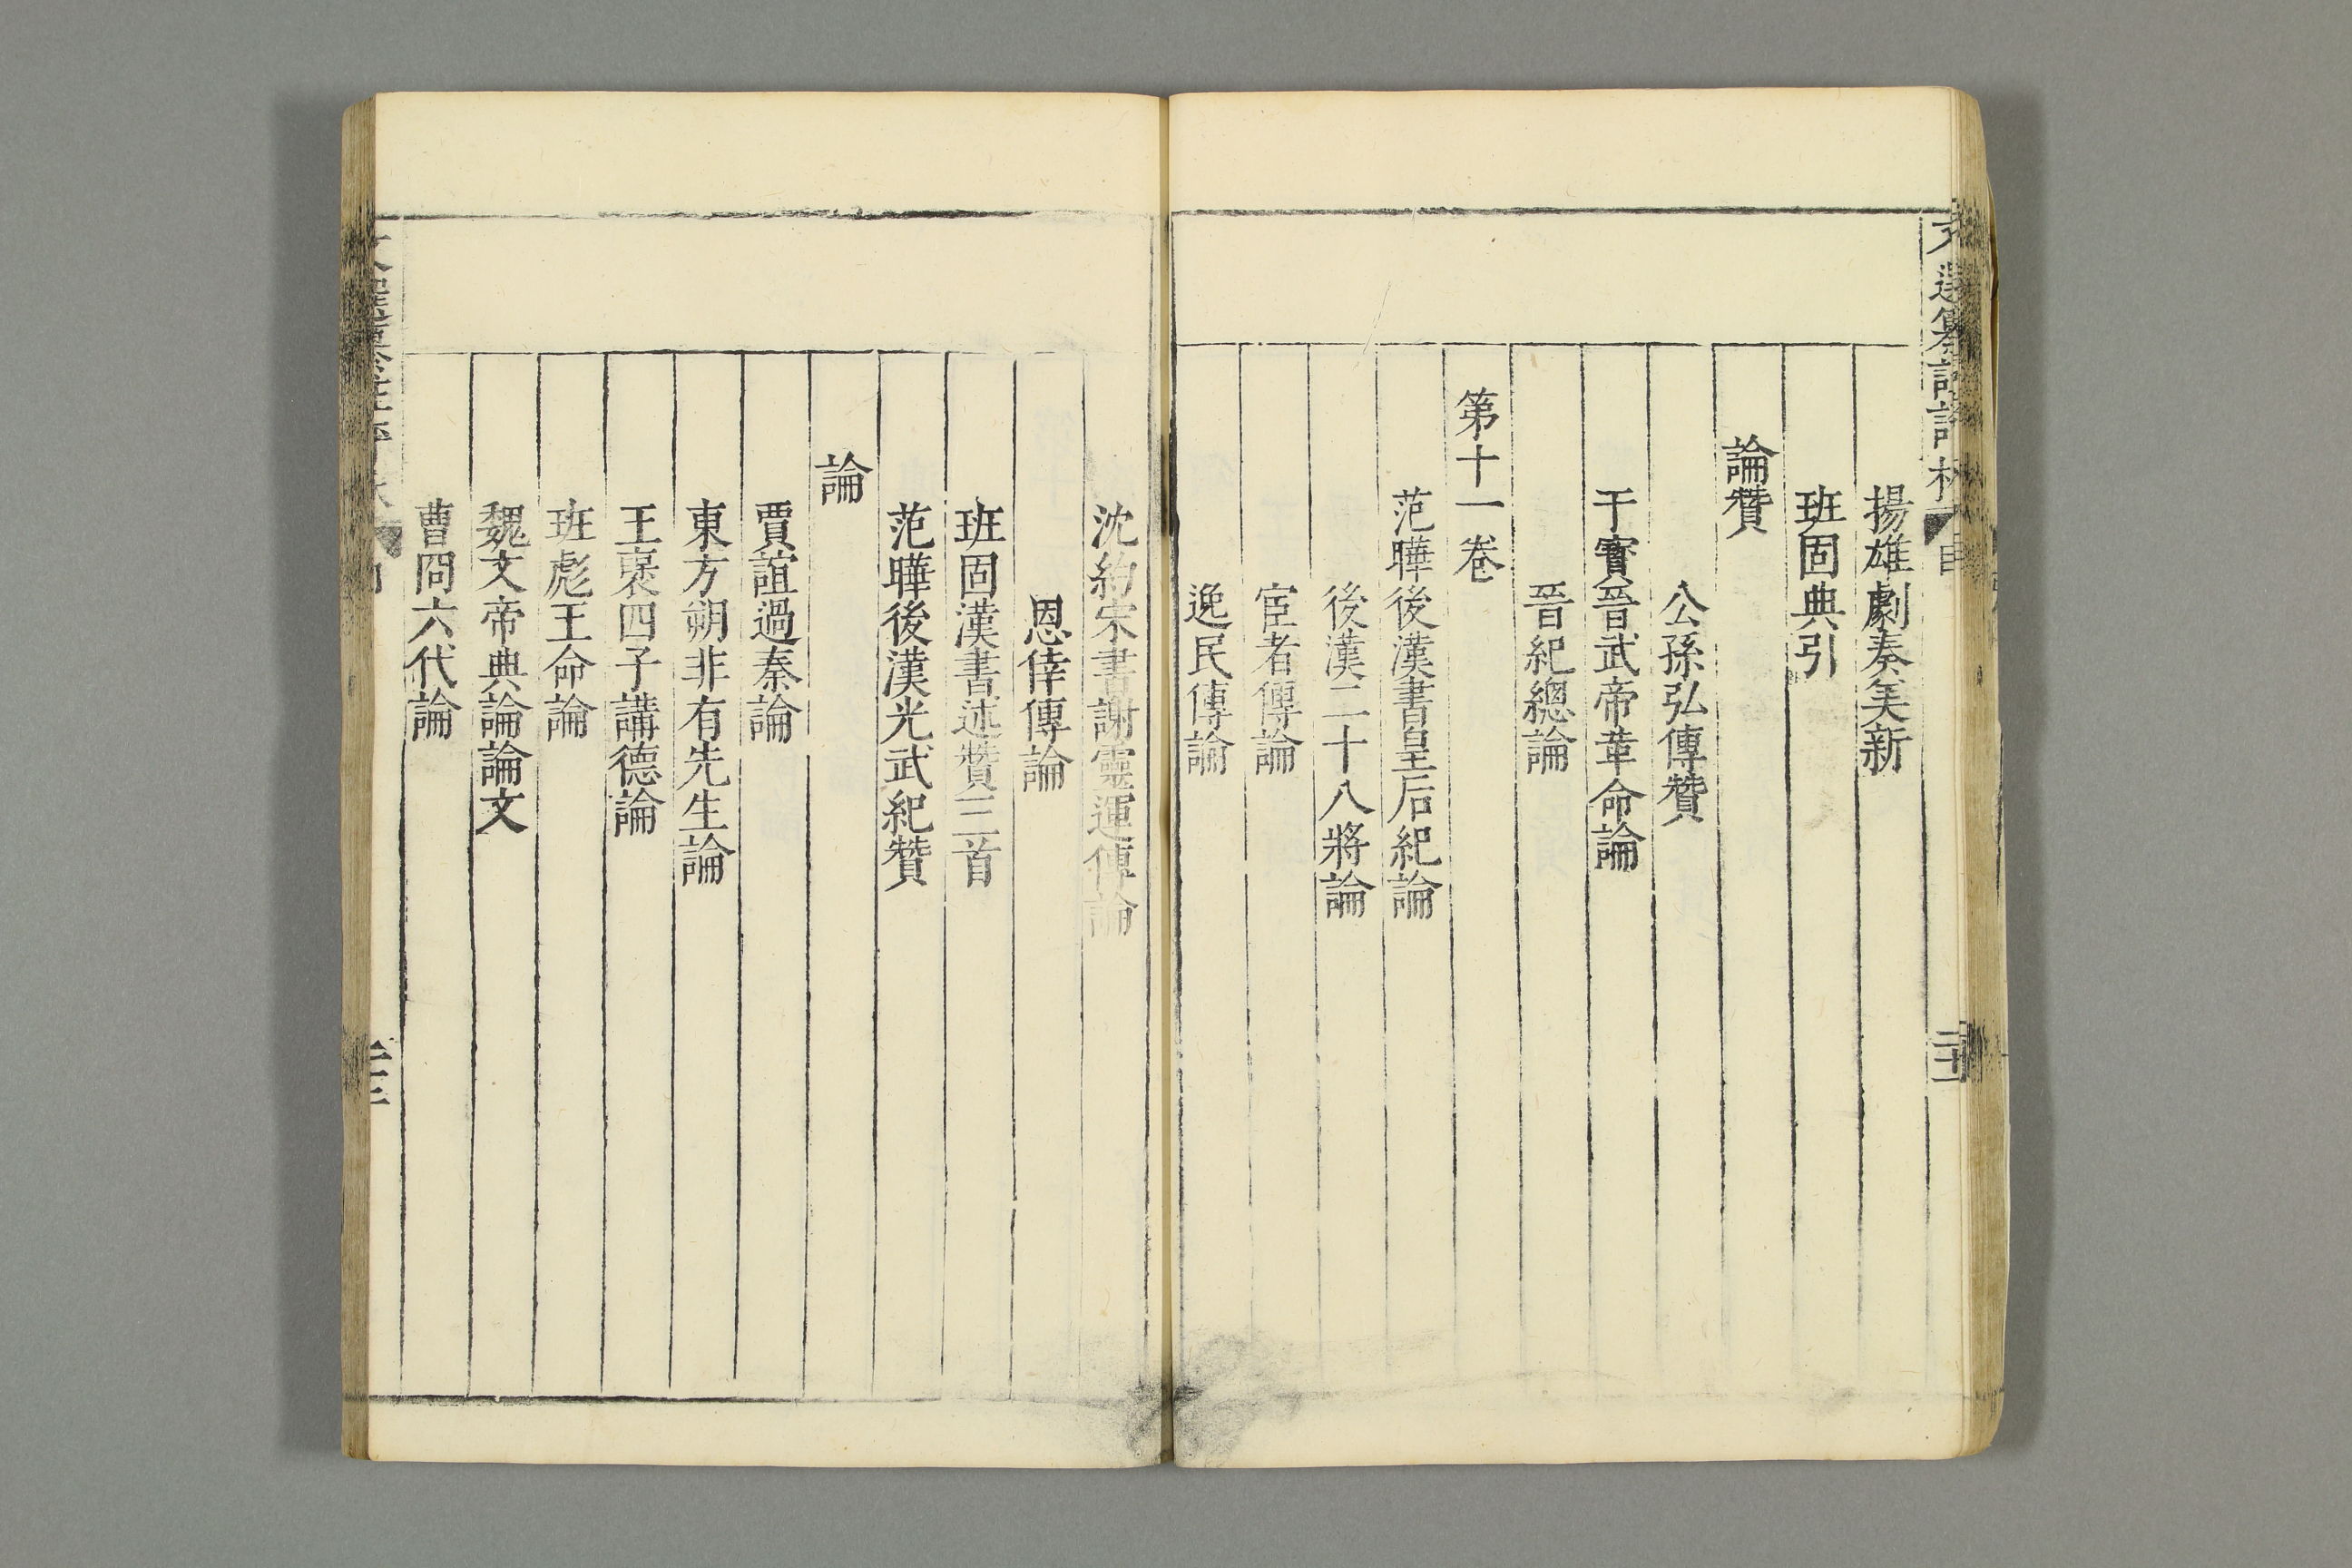 揚雄劇奏美新
班固典引
論贊
公孫弘傳贊
干寳晉武帝革命論
晉紀總論
第十一卷
范曄後漢書皇后紀論
後漢二十八將論
宦者傳論
逸民傳論
沈約宋書謝靈運傳論
恩倖傳論
班固漢書述贊三首
范曄後漢光武紀贊
論
賈誼過秦論
東方朔非有先生論
王襃四子講德論
班彪王命論
魏文帝典論論文
曹冏六代論